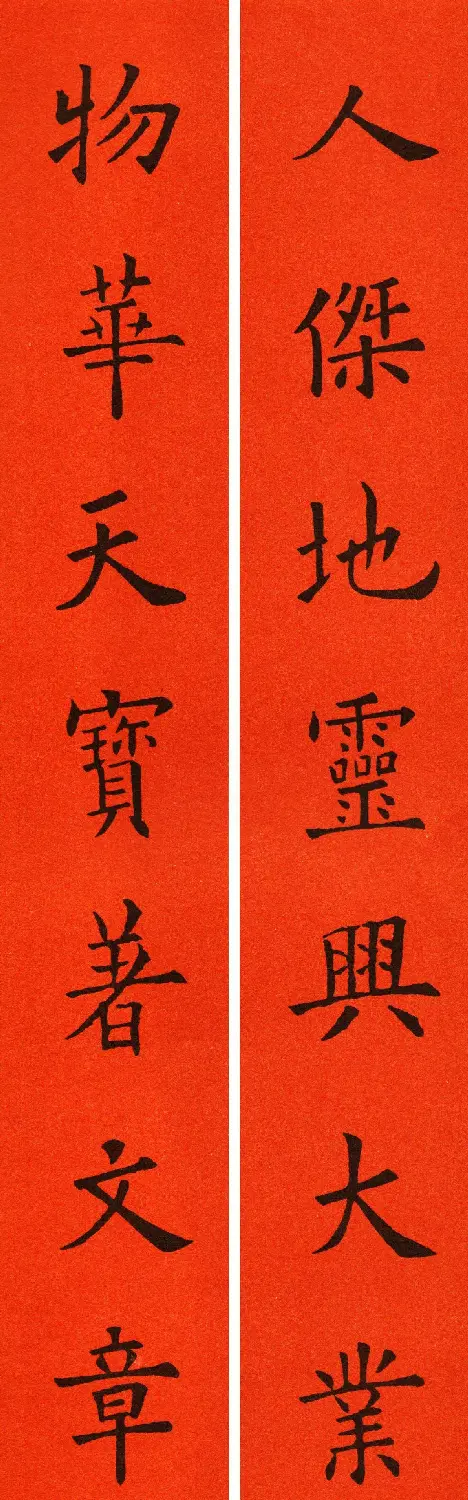 人傑地靈興大業
物華天寶著文章